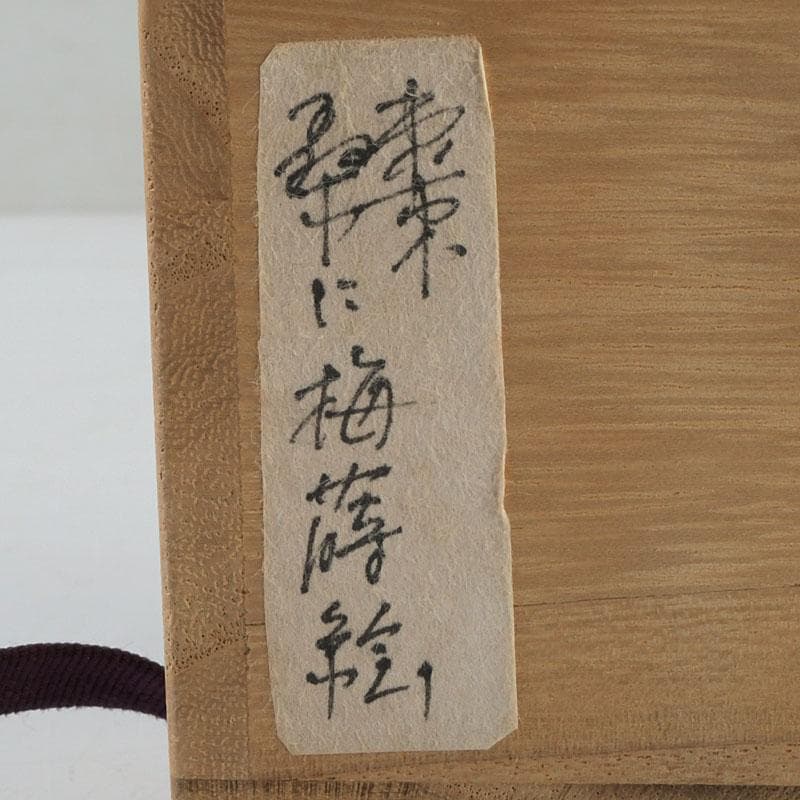 棗
桑に梅蒔絵